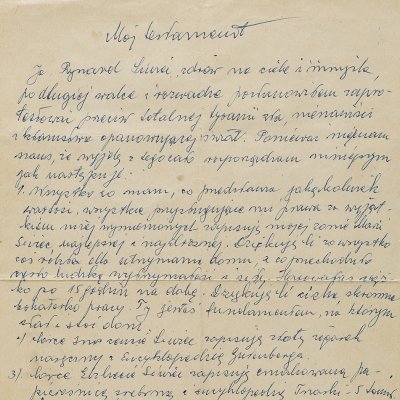 Mój testament
Ja, Ryszard Siwiec, zdrów na ciele i umyśle,
po długiej walce i rozwadze postanowiłem zapro-
testować przeciw totalnej tyranii zła, nienawiści
i kłamstwa opanowującej świat. Ponieważ mniemam
że wyjdę z tego cało rozporządzam niniejszym
jak następuje:
1. Wszystko co mam, co przedstawia jakąkolwiek
wartość, wszystkie przysługujące mi prawa za wyjąt-
kiem niżej wymienionych zapisuję mojej żonie Marii
Siwiec, najlepszej i najdroższej. Dziękuję Ci za wszystko
coś robiła dla utrzymania domu, a co przechodziło
ludzką wytrzymałość i siły. Harowałaś cięż-
ko po 15 godzin na dobę. Dziękuję Ci cicha, skromna
bohaterko pracy. Ty jesteś fundamentem, na którym
stał i stoi dom.
2) Córce Siwiec zapisuję złoty zegarek
naręczny i Encyklopedię Gutenberga.
3) Córce Elżbiecie Siwiec zapisuję emaliowaną pa-
pierośnicę srebrną i encyklopedię Trzaski - 5 tomów